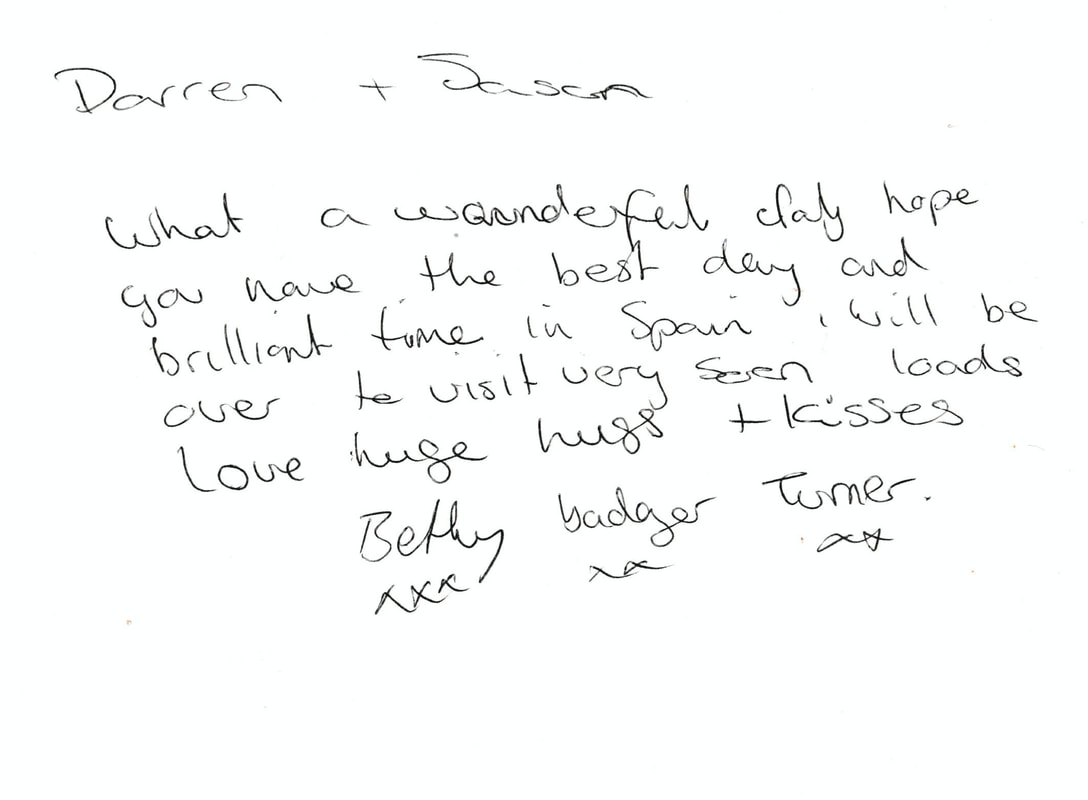 Darren + Jason
What a wonderful day hope
you have the best day and
brilliant time in Spain i will be
over to visit very soon loads
Love huge hugs + kisses
Bethy badger Turner.
xxx xx xx